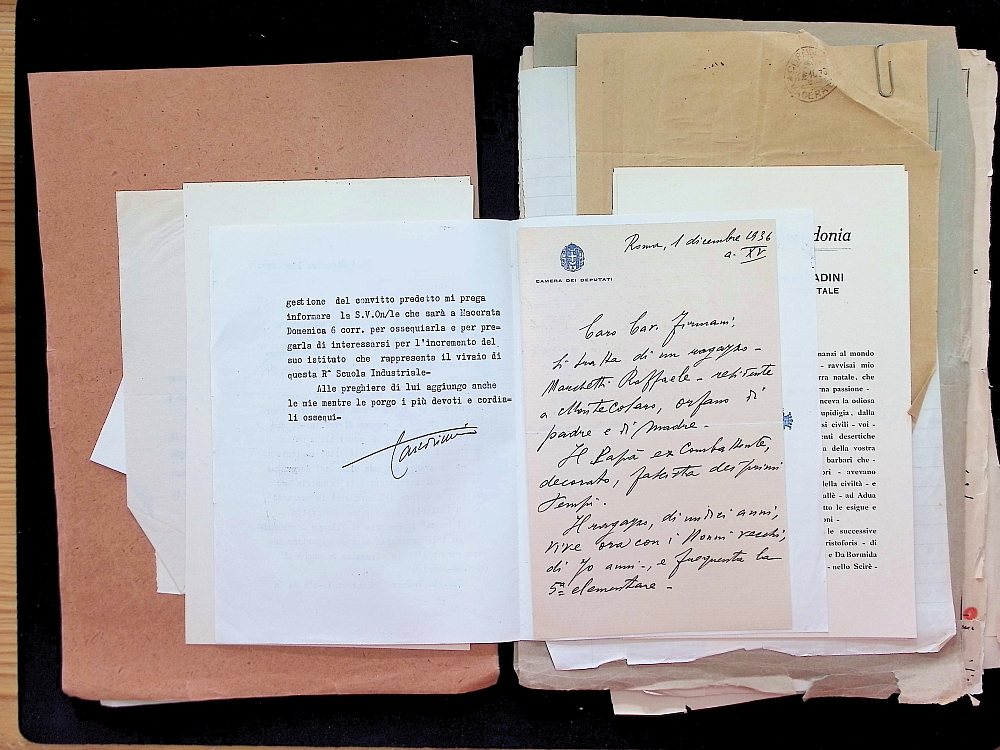 gestione del convitto predetto mi prega
informare la S.V.On/le che sarà a Macerata
Domenica 6 corr. per ossequiarla e per pre=
garla di interessarsi per l'incremento del
suo istituto che rappresente il vivaio di
questa R° Scuola Industriale-
Alle preghiere di lui aggiungo anche
le mie mentre le porgo i più devoti e cordia=
li ossequi-
CAMERA DEI DEPUTATI
Roma, 1 dicembre 1936
a. XV
Caro Cav. Firmani,
si tratta di un ragazzo -
Marchetti Raffaele - residente
a Montecosaro, orfano di
padre e di madre.
Il Papà ex Combattente,
decorato, fascista dei primi
tempi.
Il ragazzo, di undici anni,
vive ora con i Nonni vecchi,
di 70 anni -, e frequenta la
5ª elementare -
donia
ADINI
TALE
nanzi al mondo
- ravvisai mio
rra natale, che
rna passione -
nceva la odiosa
upidigia, dalla
si civili - voi -
enti desertiche
della vostra
barbari che -
ori - avevano
della civiltà - e
allè - ad Adua
tto le esigue e
oni -
le successive
ristoforis - di
e Da Bormida
- nello Scirè -